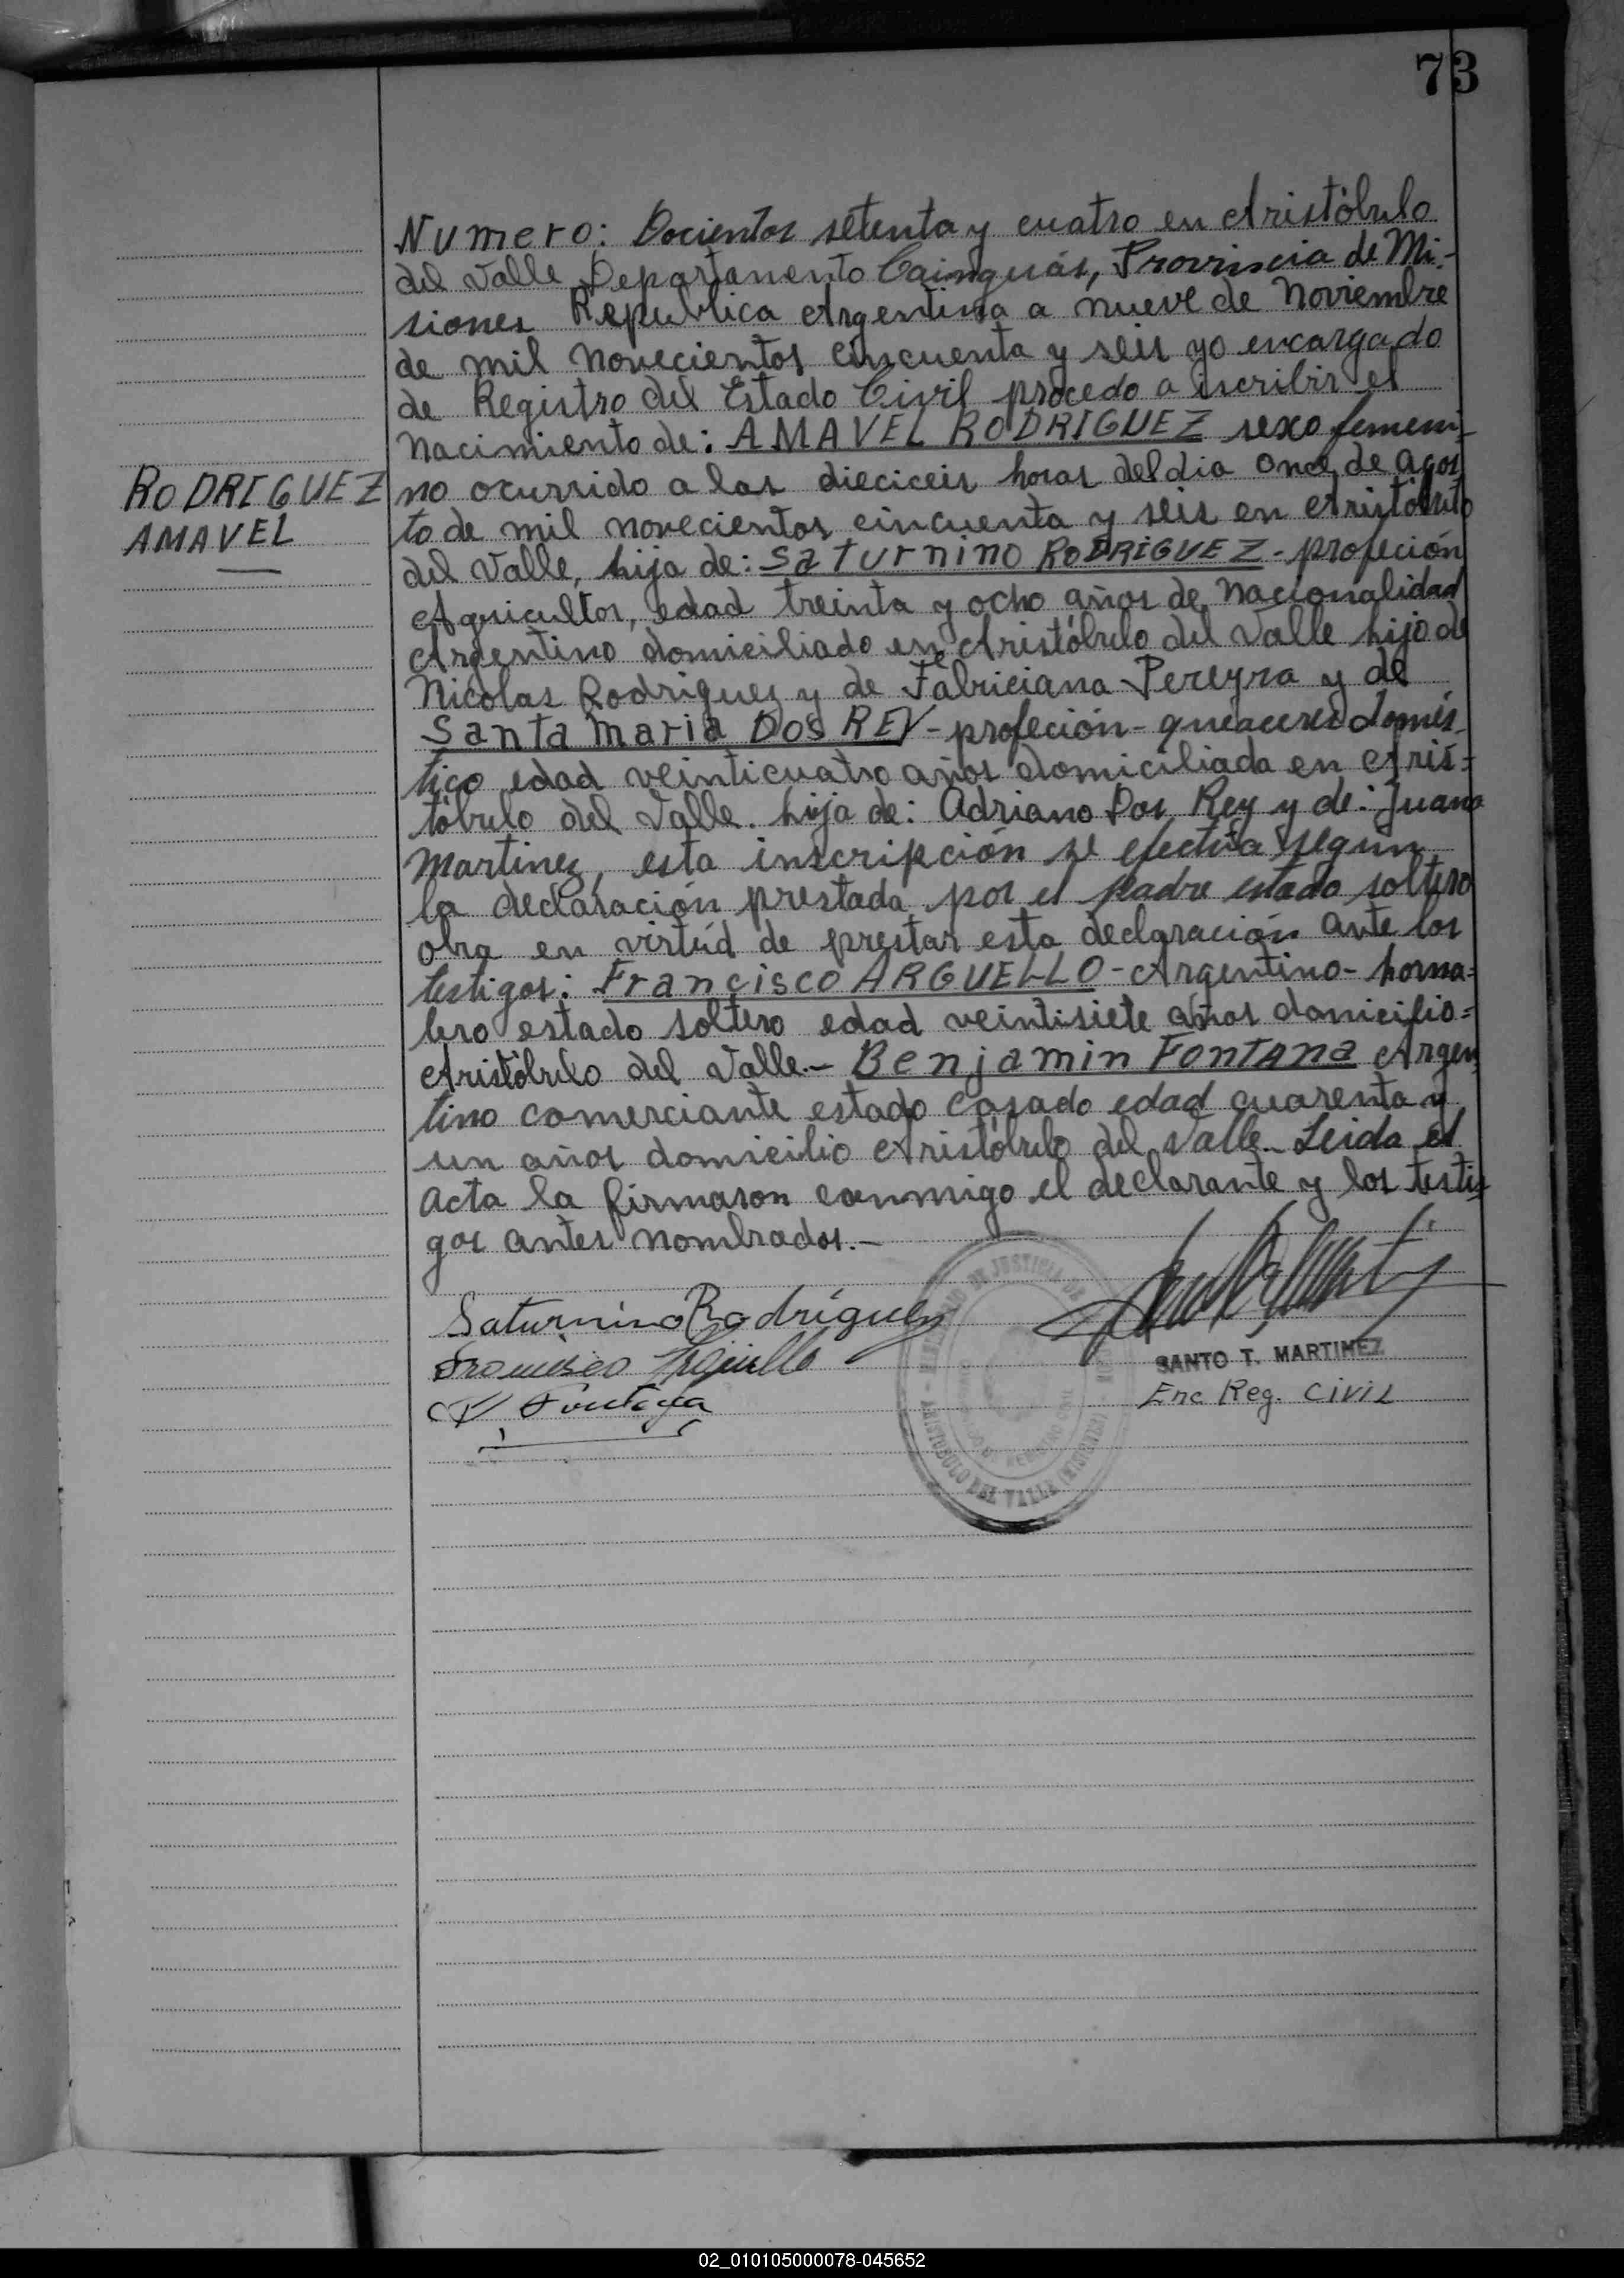 73
Numero: Docientos setenta y cuatro en Aristóbulo
del Valle Departamento Cainguás, Provinscia de Mi-
siones Republica Argentina a nueve de Noviembre
de mil novecientos cincuenta y seis yo encargado
de Registro del Estado Civil procedo a iscribir el
Nacimiento de: AMAVEL RODRIGUEZ sexo femeni-
RODRIGUEZ
AMAVEL
no ocurrido a las dieciceis horas del dia once de agos
to de mil novecientos cincuenta y seis en Aristóbulo
del Valle, hija de: Saturnino RODRIGUEZ - profeción
Agricultor, edad treinta y ocho años de Nacionalidad
Argentino domiciliado en Aristóbulo del Valle hijo de
Nicolas Rodriguez y de Feliciana Pereyra y de
Santa Maria Dos REY - profeción - queaceres domés-
tico edad veinticuatro años domiciliada en Aris=
tóbulo del Valle. hija de: Adriano Dos Rey y de: Juana
Martinez, esta inscripción se efectúa según
la declaración prestada por el padre estado soltero
obra en virtúd de prestar esta declaración ante los
testigos: Francisco ARGUELLO - Argentino - horna=
lero estado soltero edad veintisiete años domicilio=
Aristóbulo del Valle.- Benjamin Fontana Argen
tino comerciante estado casado edad cuarenta y
un años domicilio Aristóbulo del Valle. Leida el
acta la firmaron conmigo el declarante y los testi-
gos antes nombrados.-
Saturnino Rodríguez
Francisco Arguello
Fontana
SANTO T. MARTINEZ
Enc Reg. Civil
DE JUSTICIA DE
ARISTOBULO DEL VALLE (MISIONES)
02_010105000078-045652